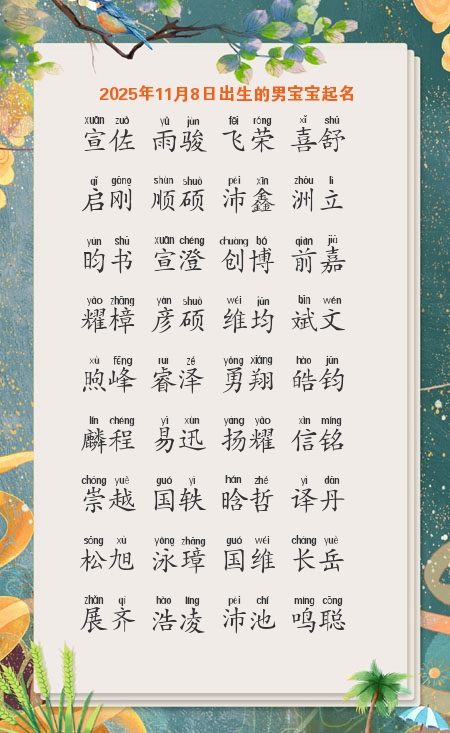 2025年11月8日出生的男宝宝起名
xuān zuǒ yǔ jùn fēi róng xǐ shū
宣佐 雨骏 飞荣 喜舒
qǐ gāng shùn shuò pèi xīn zhōu lì
启刚 顺硕 沛鑫 洲立
yún shū xuān chéng chuàng bó qián jiā
昀书 宣澄 创博 前嘉
yào zhāng yàn shuò wéi jūn bīn wén
耀樟 彦硕 维均 斌文
xù fēng ruì zé yǒng xiáng hào jūn
煦峰 睿泽 勇翔 皓钧
lín chéng yì xùn yáng yào xìn míng
麟程 易迅 扬耀 信铭
chóng yuè guó yì hán zhé yì dān
崇越 国轶 晗哲 译丹
sōng xù yǒng zhāng guó wéi cháng yuè
松旭 泳璋 国维 长岳
zhǎn qí hào líng pèi chí míng cōng
展齐 浩凌 沛池 鸣聪